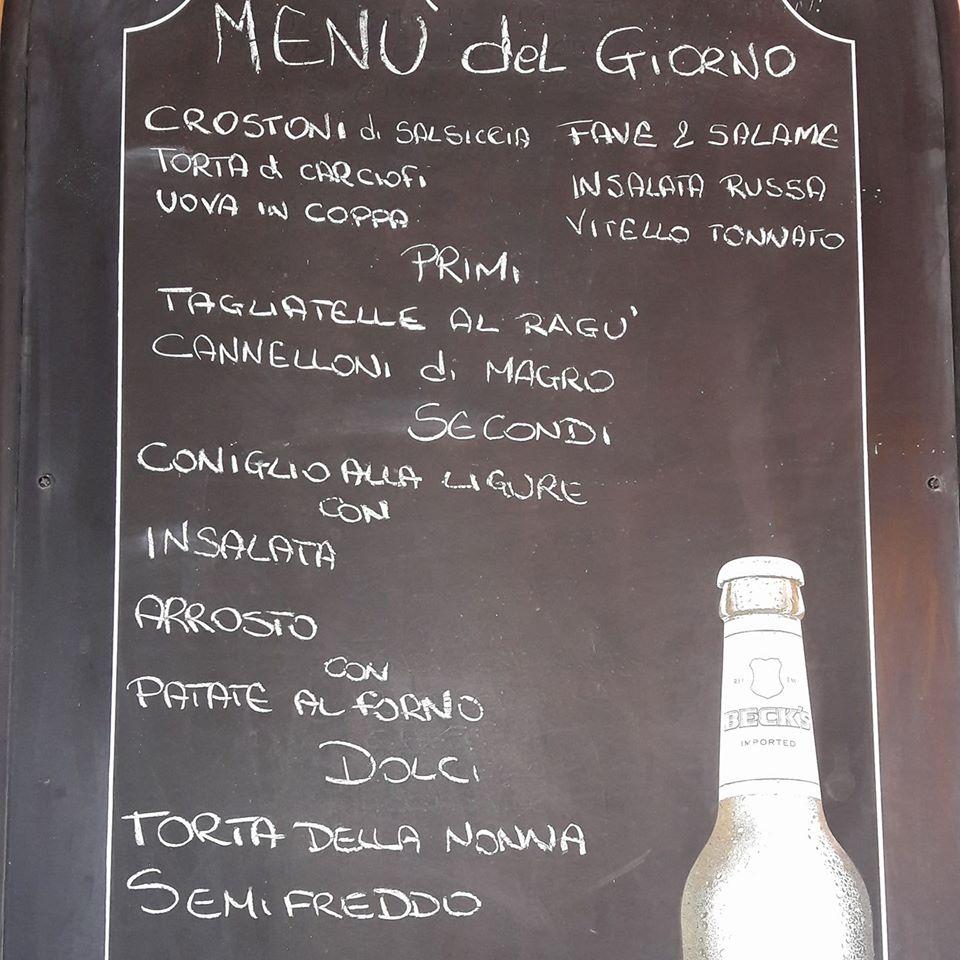 MENÙ del GIORNO
CROSTONI di SALSICCIA
TORTA di CARCIOFI
UOVA IN COPPA
FAVE & SALAME
INSALATA RUSSA
VITELLO TONNATO
PRIMI
TAGLIATELLE AL RAGU'
CANNELLONI di MAGRO
SECONDI
CONIGLIO ALLA LIGURE
CON
INSALATA
ARROSTO
CON
PATATE AL FORNO
DOLCI
TORTA DELLA NONNA
SEMIFREDDO
BECK'S
IMPORTED